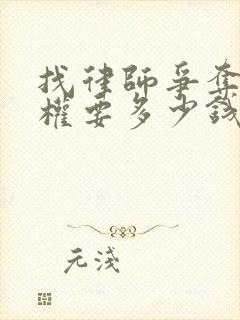 找律師爭奪
權要多少錢
元淺